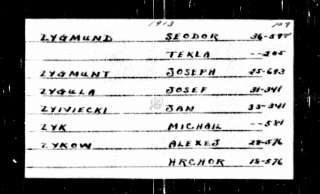 1913 109
ZYGMUND SEODOR 36-597
TEKLA --205
ZYGMUNT JOSEPH 25-693
ZYGULLA JOSEF 31-341
ZYIVIECKI JAN 35-341
ZYK MICHAIL --581
ZYKOW ALEXEJ 28-576
HRCHOR 18-576